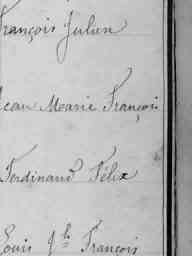 François Julien
Jean Marie François
Ferdinand Félix
Louis Jh François